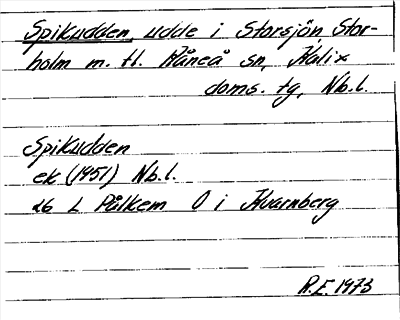 Spikudden, udde i Storsjön, Stor-
holm m. fl. Råneå sn, Kalix
doms. tg, Nb. l.
Spikudden
ek (1951) Nb. l.
26 L Pålkem O i Kvarnberg
R.E. 1973